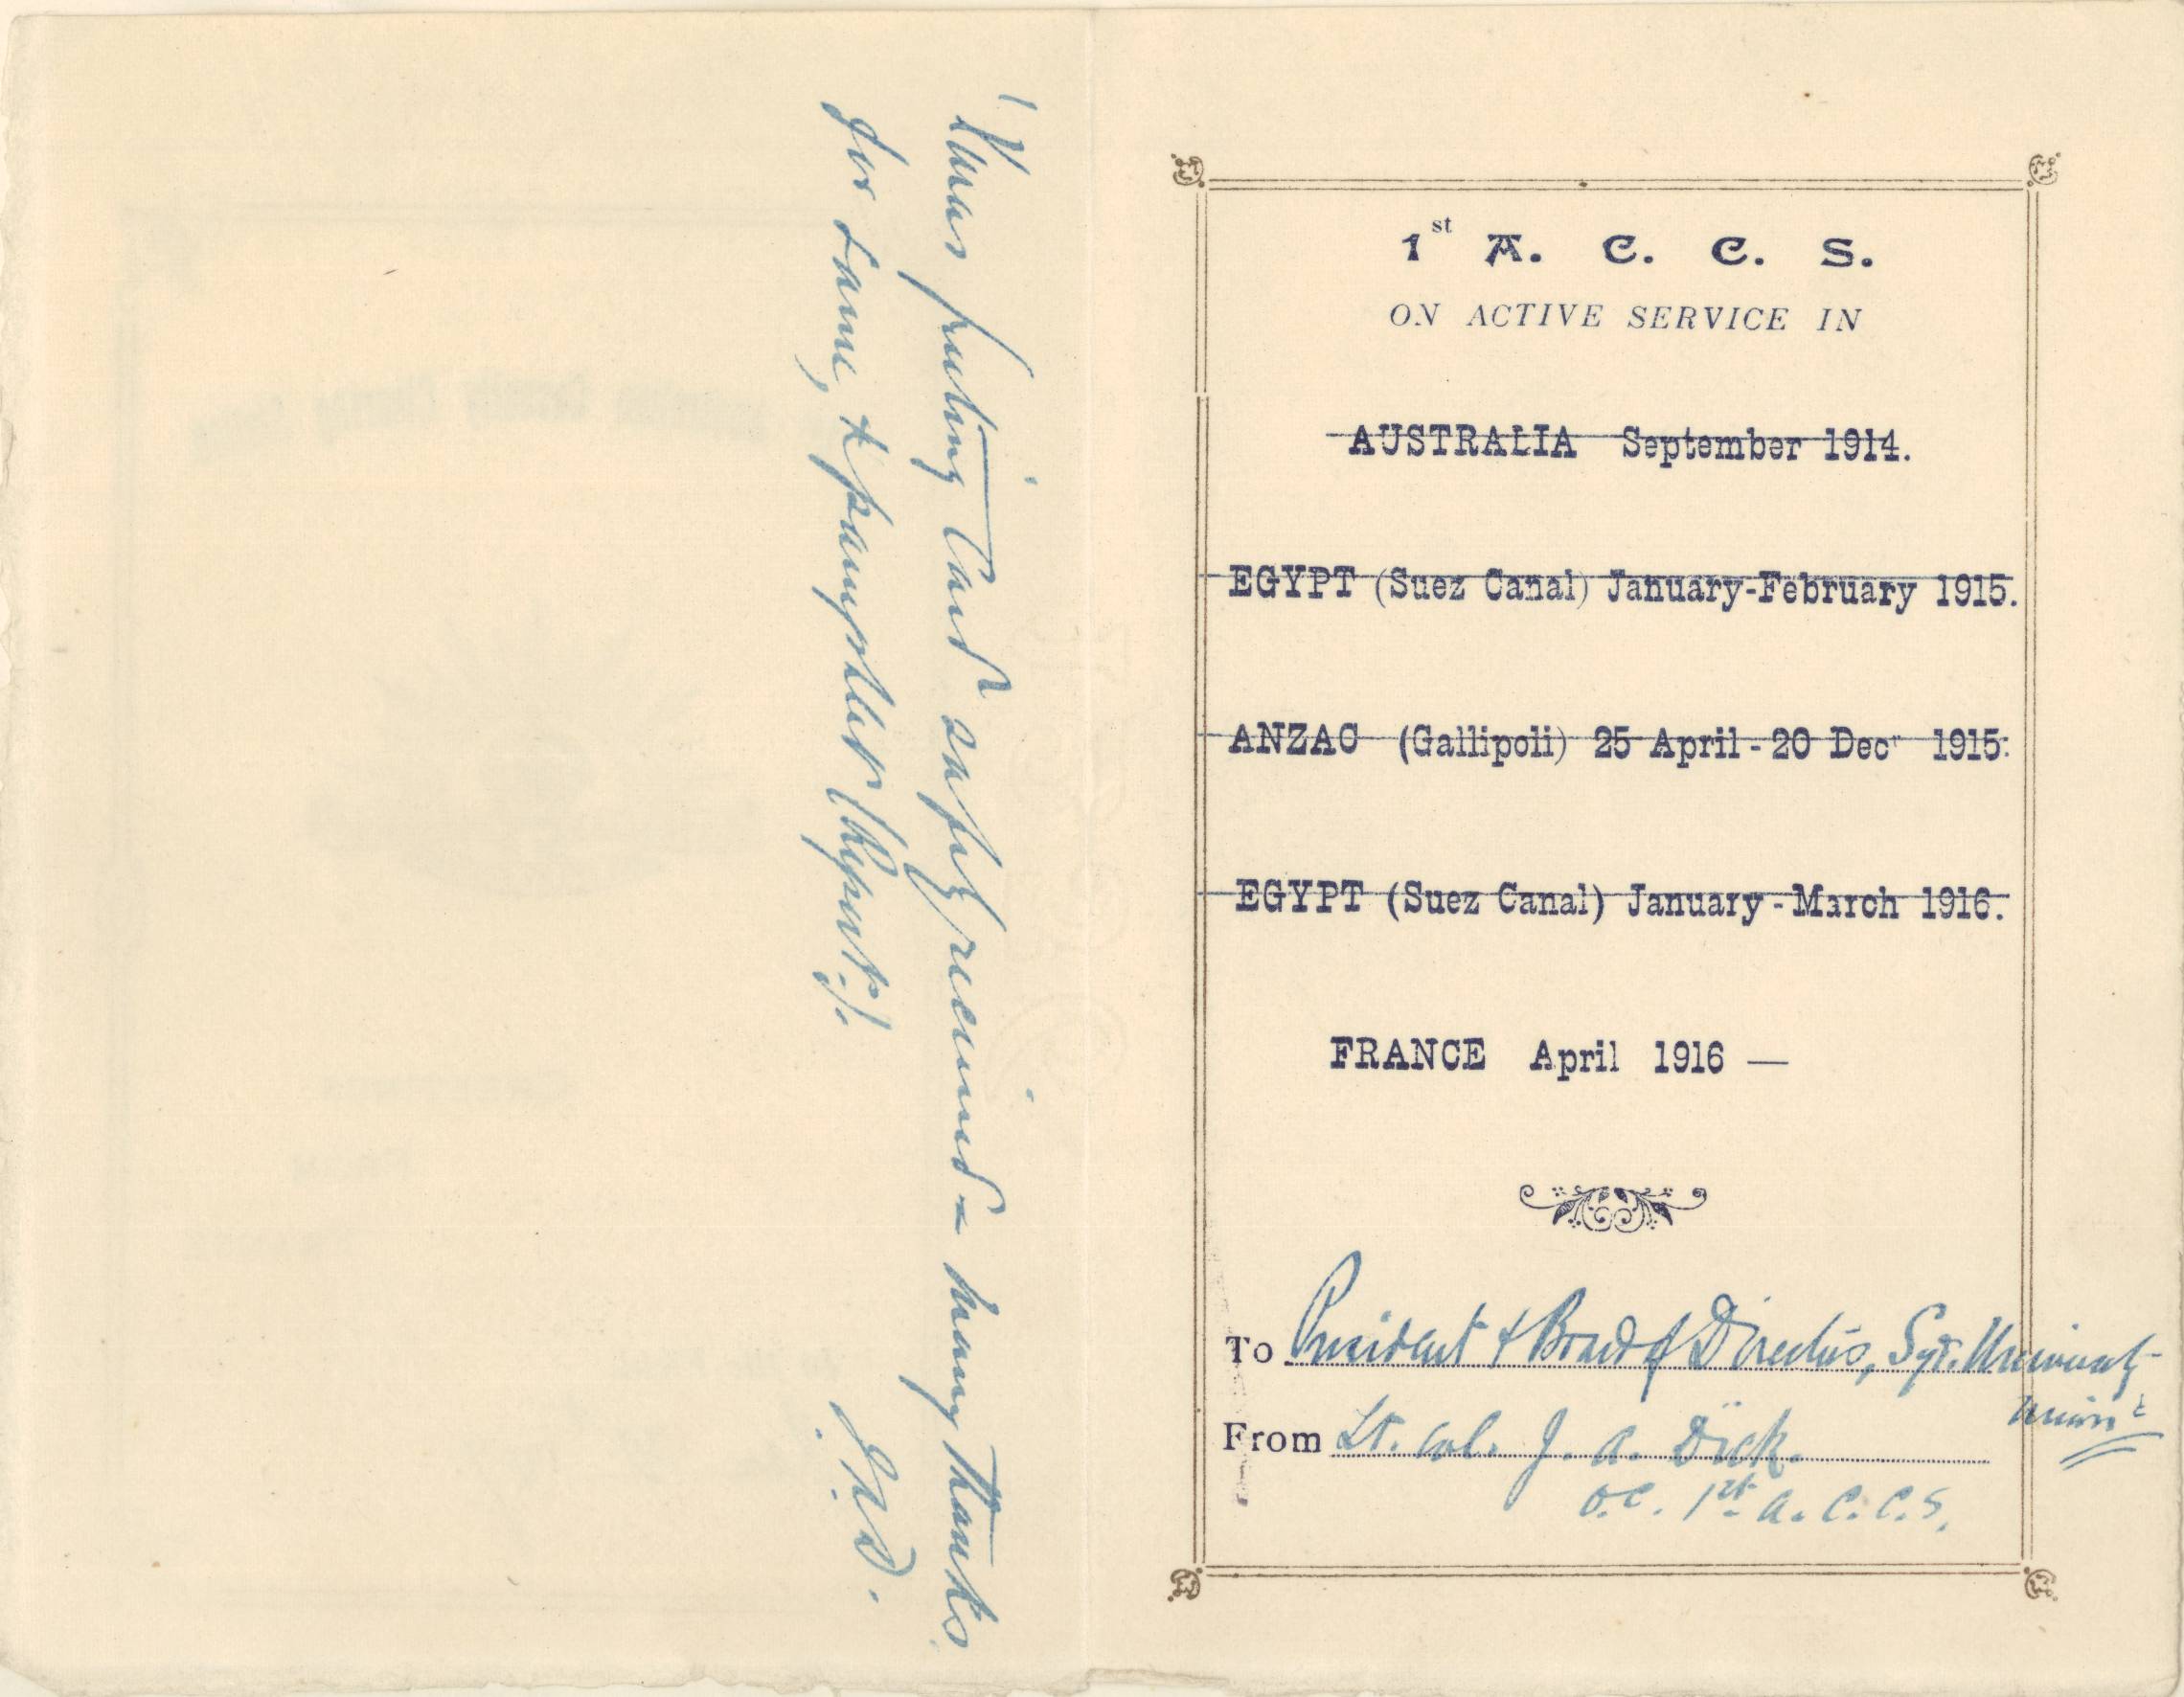 Your greeting Card safely received – many thanks
for same, & pamphlet (Report).
J.A.D.
1st A. C. C. S.
ON ACTIVE SERVICE IN
AUSTRALIA September 1914.
EGYPT (Suez Canal) January-February 1915.
ANZAC (Gallipoli) 25 April - 20 Decr 1915.
EGYPT (Suez Canal) January - March 1916.
FRANCE April 1916 —
To President & Board of Directors, Syd. University
Union
From Lt. Col. J. A. Dick.
O.C. 1st A. C. C. S.